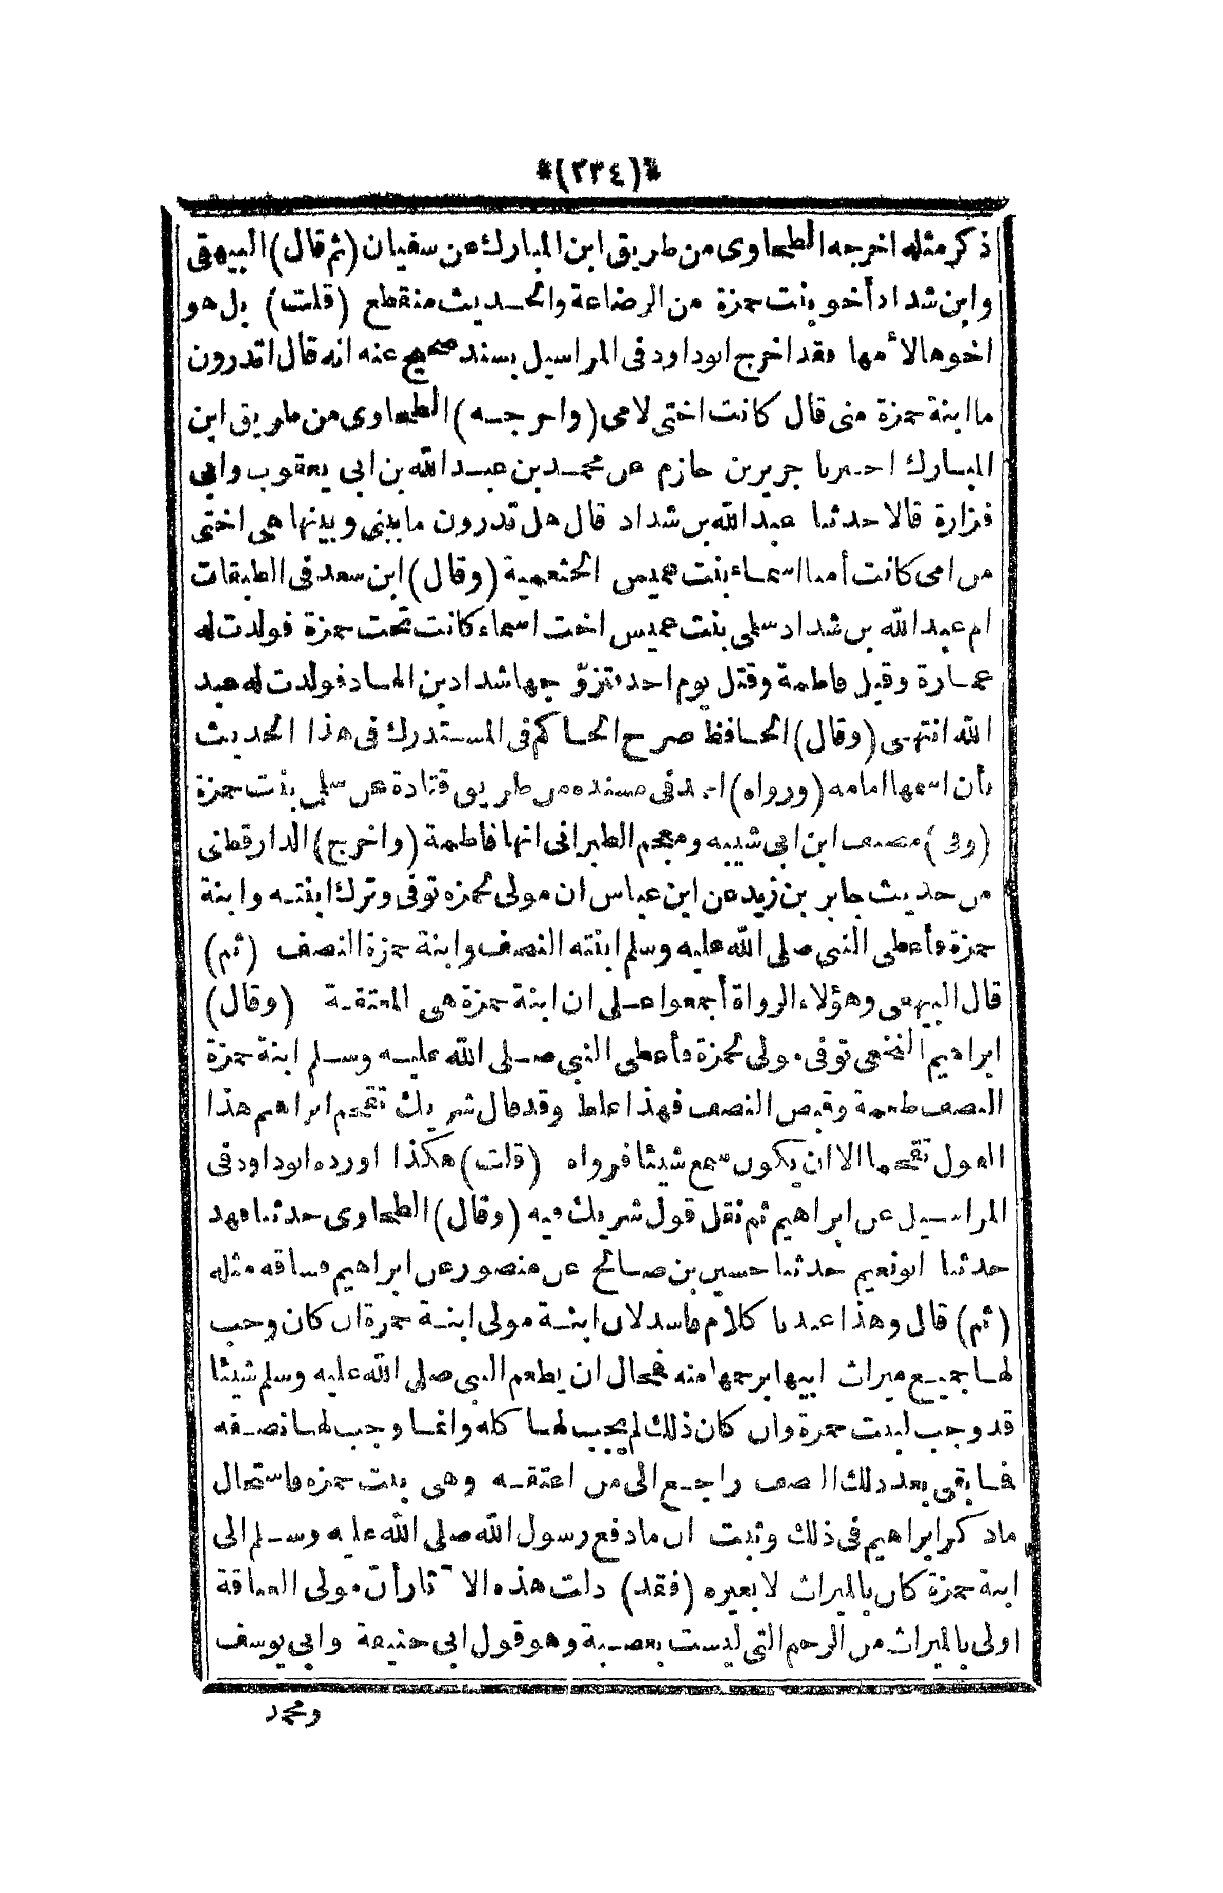 *(٢٣٤)*
ذكر مثله اخرجه الطحاوى من طريق ابن المبارك عن سفيان (ثم قال) البيهقى
وابن شداد أخو بنت حمزة من الرضاعة والحديث منقطع (قلت) بل هو
اخوها لأمها فقد اخرج ابو داود فى المراسيل بسند صحيح عنه انه قال اتدرون
ما ابنة حمزة منى قال كانت اختى لامى (واخرجه) الطحاوى من طريق ابن
المبارك اخبرنا جرير بن حازم عن محمد بن عبد الله بن ابى يعقوب وابى
فزارة قالا حدثنا عبد الله بن شداد قال هل تدرون ما بينى وبينها هى اختى
من امى كانت أمنا اسماء بنت عميس الخثعمية (وقال) ابن سعد فى الطبقات
ام عبد الله بن شداد سلمى بنت عميس اخت اسماء كانت تحت حمزة فولدت له
عمارة وقيل فاطمة وقتل يوم احد فتزوّجها شداد بن الهاد فولدت له عبد
الله انتهى (وقال) الحافظ صرح الحاكم فى المستدرك فى هذا الحديث
بأن اسمها امامه (ورواه) احمد فى مسنده من طريق قتادة عن سلمى بنت حمزة
(وفى) مصنف ابن ابى شيبه ومعجم الطبرانى انها فاطمة (واخرج) الدارقطنى
من حديث جابر بن زيد عن ابن عباس ان مولى لحمزه توفى وترك ابنته وابنة
حمزة فأعطى النبى صلى الله عليه وسلم ابنته النصف وابنة حمزة النصف (ثم)
قال البيهقى وهؤلاء الرواة أجمعوا على ان ابنة حمزة هى المعتقة (وقال)
ابراهيم النخعى توفى مولى لحمزة فأعطى النبى صلى الله عليه وسلم ابنة حمزة
النصف طعمة وقبض النصف فهذا غلط وقد قال شريك تقحم ابراهيم هذا
القول تقحما الا ان يكون سمع شيئا فرواه (قلت) هكذا اورده ابو داود فى
المراسيل عن ابراهيم ثم نقل قول شريك فيه (وقال) الطحاوى حدثنا فهد
حدثنا ابو نعيم حدثنا حسين بن صالح عن منصور عن ابراهيم فساقه مثله
(ثم) قال وهذا عندنا كلام فاسد لان ابنة مولى ابنة حمزة ان كان وجب
لها جميع ميراث ابيها برحمها منه فمحال ان يطعم النبى صلى الله عليه وسلم شيئا
قد وجب لبنت حمزة وان كان ذلك لم يجب لها كله وانما وجب لها نصفه
فما بقى بعد ذلك النصف راجع الى من اعتقه وهى بنت حمزه فاستحال
ما ذكر ابراهيم فى ذلك وثبت ان ما دفع رسول الله صلى الله عليه وسلم الى
ابنة حمزة كان بالميراث لا بغيره (فقد) دلت هذه الآثار أن مولى العتاقة
اولى بالميراث من الرحم التى ليست بعصبة وهو قول ابى حنيفة وابى يوسف
ومحمد